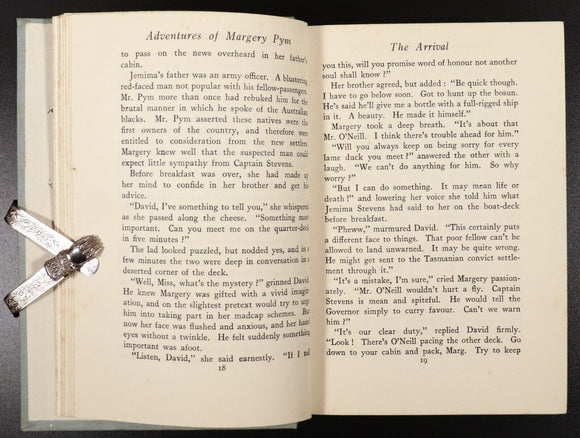 Adventures of Margery Pym
to pass on the news overheard in her father's
cabin.
Jemima's father was an army officer. A blustering
red-faced man not popular with his fellow-passengers.
Mr. Pym more than once had rebuked him for the
brutal manner in which he spoke of the Australian
blacks. Mr. Pym asserted these natives were the
first owners of the country, and therefore were
entitled to consideration from the new settlers.
Margery knew well that the suspected man could
expect little sympathy from Captain Stevens.
Before breakfast was over, she had made up
her mind to confide in her brother and get his
advice.
"David, I've something to tell you," she whispered
as she passed along the cheese. "Something most
important. Can you meet me on the quarter-deck
in five minutes?"
The lad looked puzzled, but nodded yes, and in a
few minutes the two were deep in conversation in a
deserted corner of the deck.
"Well, Miss, what's the mystery?" grinned David.
He knew Margery was gifted with a vivid imagin-
ation, and on the slightest pretext would try to urge
him into taking part in her madcap schemes. But
now her face was flushed and anxious, and her hazel
eyes without a twinkle. He felt suddenly something
important was afoot.
"Listen, David," she said earnestly. "If I tell
18
The Arrival
you this, will you promise word of honour not another
soul shall know?"
Her brother agreed, but added: "Be quick though.
I have to go below soon. Got to hunt up the bosun.
He's said he'll give me a bottle with a full-rigged ship
in it. A beauty. He made it himself."
Margery took a deep breath. "It's about that
Mr. O'Neill. I think there's trouble ahead for him."
"Will you always keep on being sorry for every
lame duck you meet?" answered the other with a
laugh. "We can't do anything for him. So why
worry?"
"But I can do something. It may mean life or
death!" and lowering her voice she told him what
Jemima Stevens had said to her on the boat-deck
before breakfast.
"Pheww," murmured David. "This certainly puts
a different face to things. That poor fellow can't be
allowed to land unwarned. It may be quite wrong.
He might get sent to the Tasmanian convict settle-
ment through it."
"It's a mistake, I'm sure," cried Margery passion-
ately. "Mr. O'Neill wouldn't hurt a fly. Captain
Stevens is mean and spiteful. He would tell the
Governor simply to curry favour. Can't we warn
him?"
"It's our clear duty," replied David firmly.
"Look! There's O'Neill pacing the other deck. Go
down to your cabin and pack, Marg. Try to keep
19